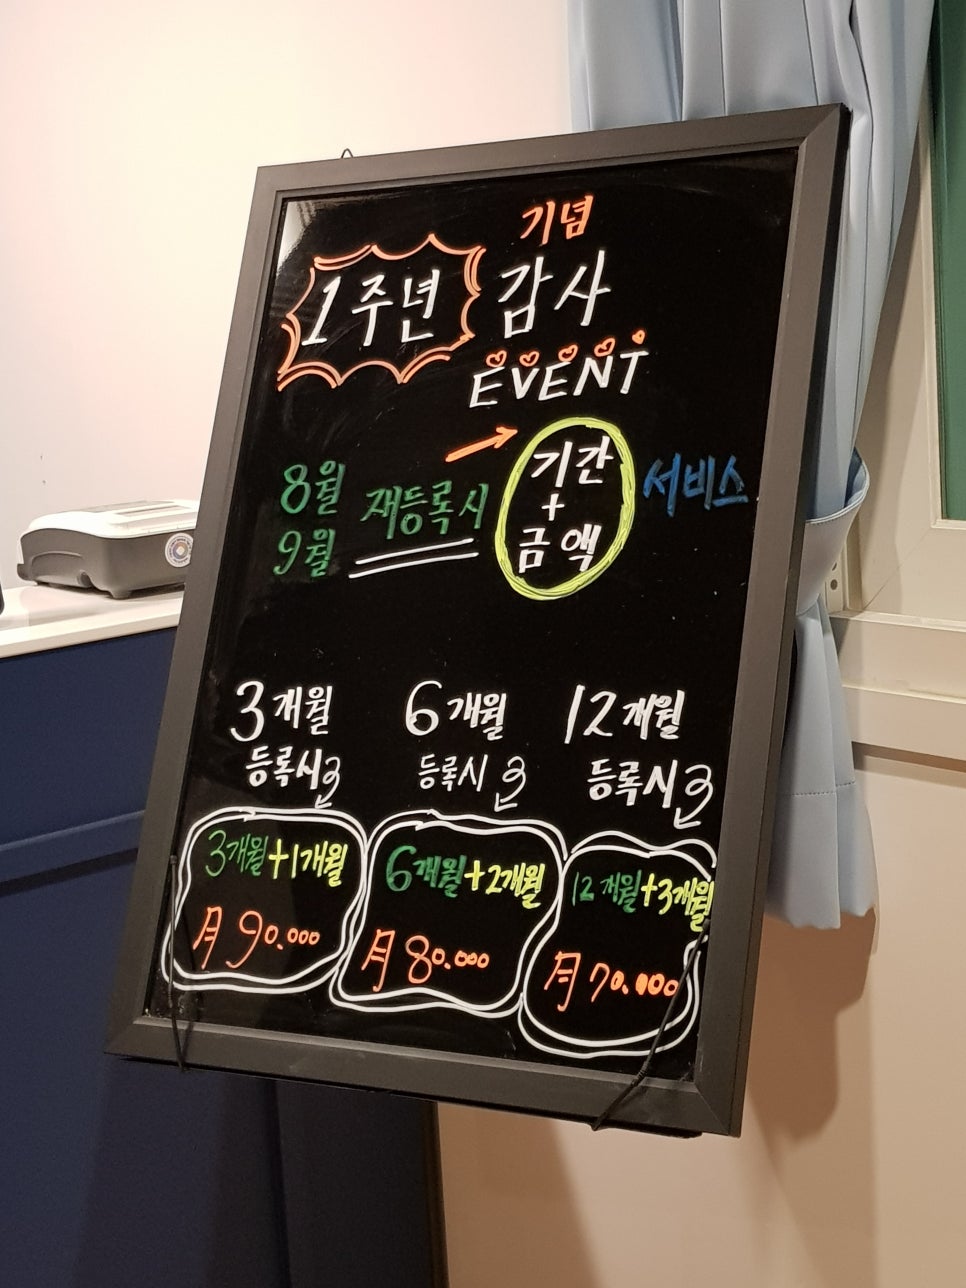 기념
1주년 감사
EVENT
8월
9월
재등록시
기간
+
금액
서비스
3개월
등록시
6개월
등록시
12개월
등록시
3개월+1개월
月 90.000
6개월+2개월
月 80.000
12개월+3개월
月 70.000